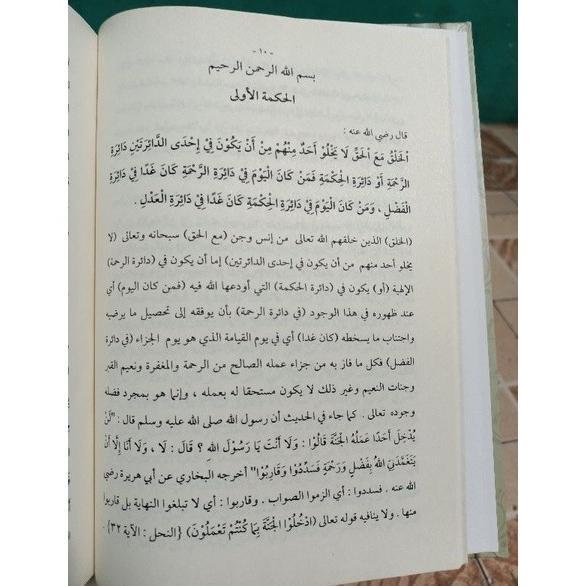 - ١٠ -
بسم الله الرحمن الرحيم
الحكمة الأولى
قال رضي الله عنه :
اَلْخَلْقُ مَعَ الْحَقِّ لَا يَخْلُوْ أَحَدٌ مِنْهُمْ مِنْ أَنْ يَكُوْنَ فِيْ إِحْدَى الدَّائِرَتَيْنِ دَائِرَةِ
الرَّحْمَةِ أَوْ دَائِرَةِ الْحِكْمَةِ فَمَنْ كَانَ الْيَوْمَ فِيْ دَائِرَةِ الرَّحْمَةِ كَانَ غَدًا فِيْ دَائِرَةِ
الْفَضْلِ ، وَمَنْ كَانَ الْيَوْمَ فِيْ دَائِرَةِ الْحِكْمَةِ كَانَ غَدًا فِيْ دَائِرَةِ الْعَدْلِ .
(الخلق) الذين خلقهم الله تعالى من إنس وجن (مع الحق) سبحانه وتعالى (لا
يخلو أحد منهم من أن يكون في إحدى الدائرتين) إما أن يكون في (دائرة الرحمة)
الإلهية (أو) يكون في (دائرة الحكمة) التي أودعها الله فيه (فمن كان اليوم) أي
عند ظهوره في هذا الوجود (في دائرة الرحمة) بأن يوفقه إلى تحصيل ما يرضيه
واجتناب ما يسخطه (كان غدا) أي في يوم القيامة الذي هو يوم الجزاء (في دائرة
الفضل) فكل ما فاز به من جزاء عمله الصالح من الرحمة والمغفرة ونعيم القبر
وجنات النعيم وغير ذلك لا يكون مستحقا له بعمله ، وإنما هو بمجرد فضله
وجوده تعالى . كما جاء في الحديث أن رسول الله صلى الله عليه وسلم قال : "لَنْ
يُدْخِلَ أَحَدًا عَمَلُهُ الْجَنَّةَ قَالُوْا : وَلَا أَنْتَ يَا رَسُوْلَ اللهِ ؟ قَالَ : لَا ، وَلَا أَنَا إِلَّا أَنْ
يَتَغَمَّدَنِيَ اللهُ بِفَضْلٍ وَرَحْمَةٍ فَسَدِّدُوْا وَقَارِبُوْا" أخرجه البخاري عن أبي هريرة رضي
الله عنه . فسددوا : أي الزموا الصواب . وقاربوا : أي لا تبلغوا النهاية بل قاربوا
منها . ولا ينافيه قوله تعالى (ادْخُلُوْا الْجَنَّةَ بِمَا كُنْتُمْ تَعْمَلُوْنَ) {النحل : الآية ٣٢} .